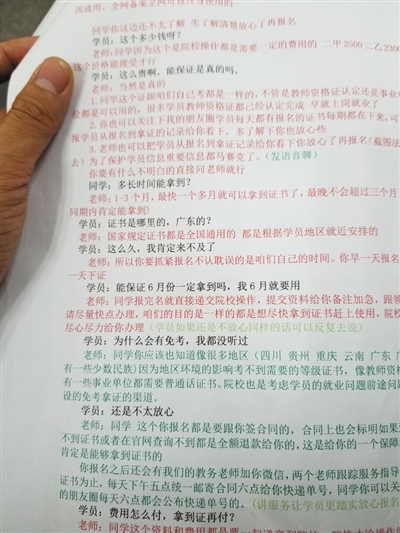 国通用、全网备案全网可查终身使用的
同学你这边还不太了解 先了解清楚放心了再报名
学员：这个多少钱呀？
老师：同学因为这个是院校操作都是需要一定的费用的 二甲2500二乙2300
这个价格能接受才行
学员：这么贵啊，能保证是真的吗。
老师：当然是真的
1.同学这个证跟咱们自己考都是一样的，不管是教师资格证认定还是事业单
位都是可以用的，很多学员教师资格证都已经认定完成 早就上岗就业了
2.你也可以关注下我的朋友圈学员每天都有报名的证书每期都在下来，可
报学员从报名到拿证的记录给你看下，多了解下你也放心些
3.老师也可以把学员从报名到拿证记录让给你看下你放心了再报名(截图法
去）为了保护学员信息重要信息都马赛克了。（发语音聊）
你要有什么不明白的直接问老师就行
同学：多长时间能拿到？
老师：1-3个月，最快一个多月就可以拿到证书了，最晚不会超过三个月
同期内肯定能拿到）
学员：证书是哪里的，广东的？
老师：国家规定证书都是全国通用的 都是根据学员地区就近安排的
学员：这么久，我肯定来不及了
老师：所以你要抓紧报名不认耽误的是咱们自己的时间。你早一天报名
一天下证
学员：能保证6月份一定拿到吗，我6月就要用
老师：同学报完名就直接递交院校操作，提交资料给你备注加急，跟领
请尽量快点办理，咱们的目的是一样的都是想尽快拿到证书赶上使用，院校
尽心尽力给你办理（学员如果还是不放心同样的话可以反复去说）
学员：为什么会有免考，我都没听过
老师：同学你应该也知道像很多地区（四川 贵州 重庆 云南 广东 广
有一些少数民族)因为地区环境的影响考不到需要的等级证书，像教师资格
有一些事业单位都需要普通话证书。院校也是考虑学员的就业问题前途问题
设的免考拿证的渠道。
学员：还是不太放心
老师：同学 这个你报名都是要跟你签合同的，合同上也会标明如果
不到证书或者在官网查询不到都是全额退款给你的，这是给你的一个保障
肯定是能够拿到证书的
你报名之后还会有我们的教务老师加你微信，两个老师跟踪服务指导
证书为止，每天下午五点统一邮寄合同六点给你快递单号，同学你可以关
的朋友圈每天六点都会公布快递单号的。（讲服务让学员更踏实放心报名
学员：费用怎么付，拿到证再付？
老师：同学这个资料和费用都是要一起递交到院校